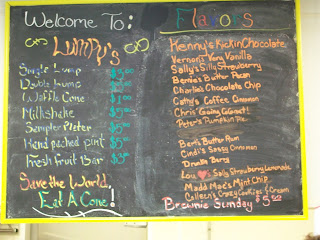 Welcome To:
Lumpy's
Single Lump $3.00
Double Lump
Waffle Cone $1.00
Milkshake $5.00
Sampler Plater $5.00
Hand packed pint $5.00
Fresh Fruit Bar
Save the World,
Eat A Cone!
Flavors
Henny's Kickin Chocolate
Vernon's Very Vanilla
Sally's Silly Strawberry
Bernie's Butter Pecan
Charlie's Chocolate Chip
Cathy's Coffee Cinnamon
Chris Going Caramel!
Peter's Pumpkin Pie
Bert's Butter Rum
Cindi's Sassy Cinnamon
Drunken Berry
Lou ♥s Sally Strawberry Lemonade
Madd Mac's Mint Chip
Colleen's Crazy Cookies & Cream
Brownie Sunday $6.00